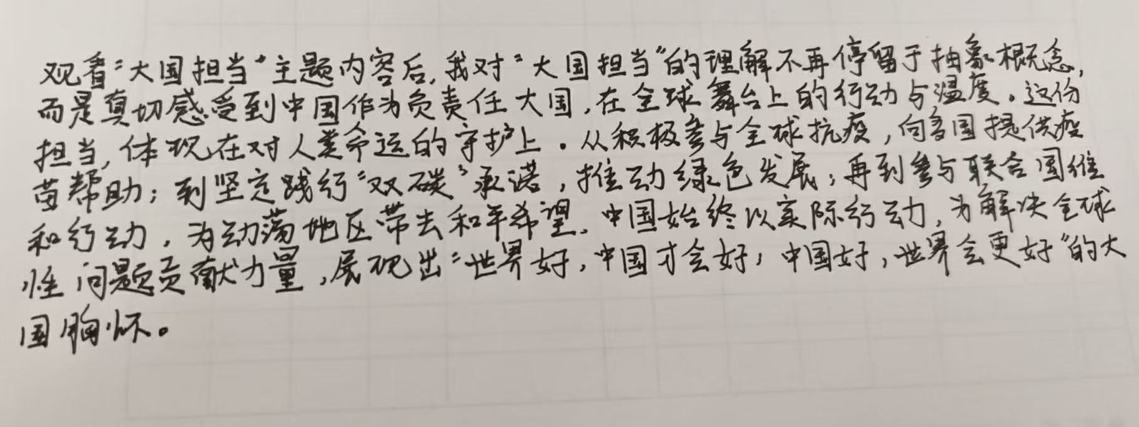 观看“大国担当”主题内容后，我对“大国担当”的理解不再停留于抽象概念，
而是真切感受到中国作为负责任大国，在全球舞台上的行动与温度。这份
担当，体现在对人类命运的守护上。从积极参与全球抗疫，向各国提供疫
苗帮助；到坚定践行“双碳”承诺，推动绿色发展；再到参与联合国维
和行动，为动荡地区带去和平希望。中国始终以实际行动，为解决全球
性问题贡献力量，展现出“世界好，中国才会好；中国好，世界会更好”的大
国胸怀。